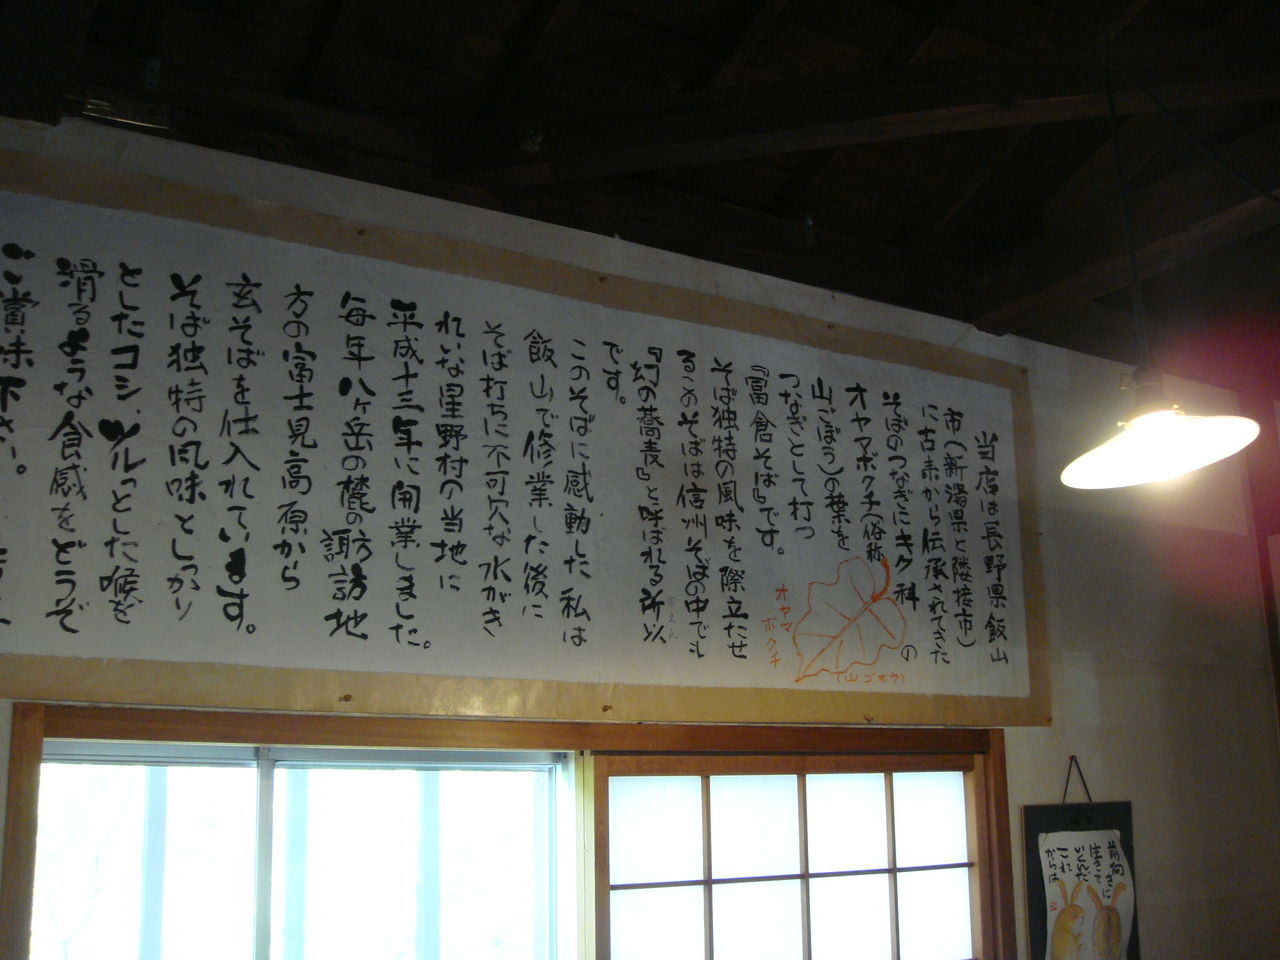 当店は長野県飯山
市(新潟県と隣接市)
に古来から伝承されてきた
そばのつなぎにキク科の
オヤマボクチ(俗称
山ごぼう)の葉を
つなぎとして打つ
『富倉そば』です。
そば独特の風味を際立たせ
るこのそばは信州そばの中でも
『幻の蕎麦』と呼ばれる所以
です。
このそばに感動した私は
飯山で修業した後に
そば打ちに不可欠な水がき
れいな星野村の当地に
平成十三年に開業しました。
毎年八ヶ岳の麓の諏訪地
方の富士見高原から
玄そばを仕入れています。
そば独特の風味としっかり
としたコシ、ツルっとした喉を
滑るような食感をどうぞ
ご賞味下さい。
オヤマ
ボクチ
(山ゴボウ)
前向きに
生きて
いくんだ
これ
からは